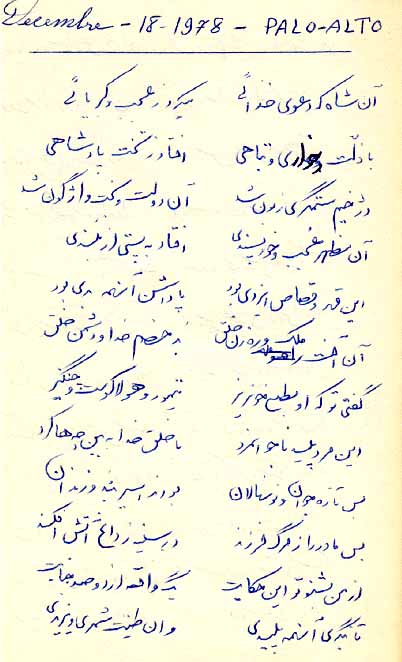 Decembre - 18-1978 - PALO-ALTO
آن شاه که دعوی خدائی میکرد ز عجب و کبریائی
با ذلت و خواری و تباهی افتاد ز تخت پادشاهی
دژخیم ستمگری زبون شد آن دولت و بخت واژگون شد
آن مظهر عجب و خودپسندی افتاد به پستی از بلندی
این قهر و قصاص ایزدی بود پاداش آنهمه بدی بود
آن آفت ملک و رهزن خلق بد خصم خدا و دشمن خلق
گفتی تو که او بطبع خونریز تیمور و هولاکوست و چنگیز
این مرد پلید ناجوانمرد با خلق خدا ببین چه ها کرد
بس تازه جوان و نونهالان بودند اسیر بند و زندان
بس مادر از مرگ فرزند در سینه ز داغ آتش افکند
از من بشنو تو این حکایت یک واقعه از دو صد جنایت
تا بنگری آنهمه پلیدی وان طینت شمری و یزیدی